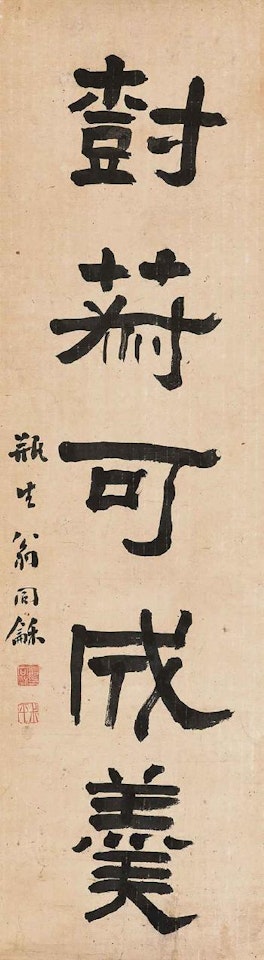 尌可成羹
瓶生翁同龢